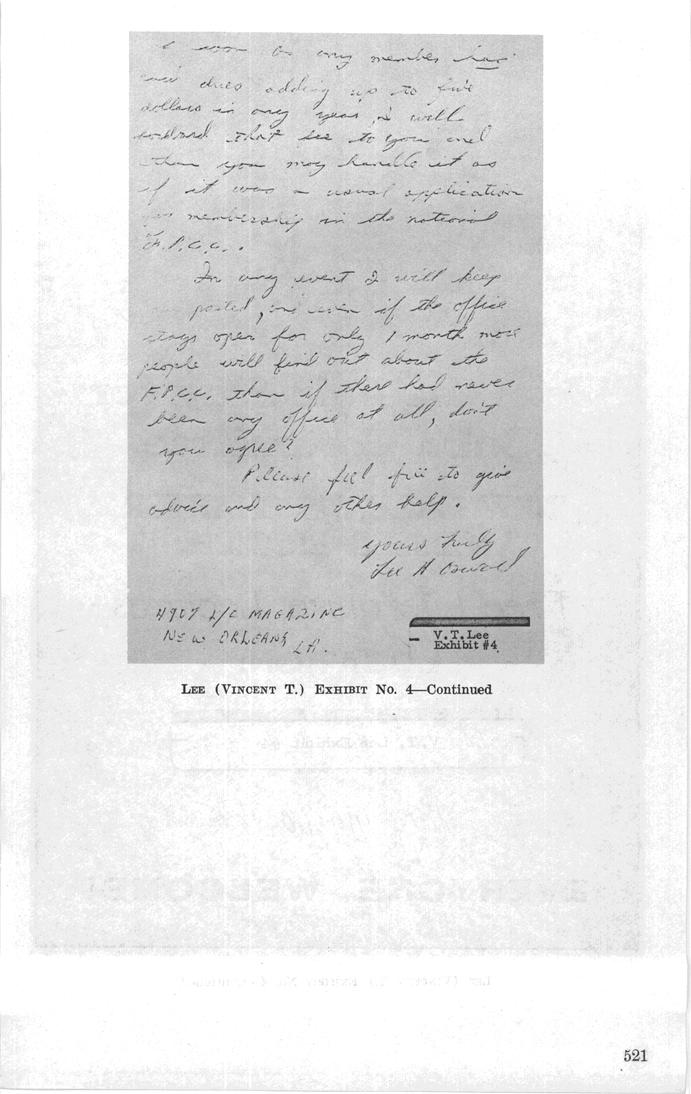 soon as any member has
paid dues adding up to five
dollars in any year, I will
forward that fee to you and
then you may handle it as
if it was a usual application
for membership in the national
F.P.C.C..
In any event I will keep
posted, and even if the office
stays open for only 1 month more
people will find out about the
F.P.C.C. than if there had never
been any office at all, don't
you agree?
Please feel free to give
advice and any other help.
yours truly
Lee H Oswald
4907 MAGAZINE
NEW ORLEANS
LA.
V.T.Lee
Exhibit #4
LEE (VINCENT T.) EXHIBIT No. 4—Continued
521